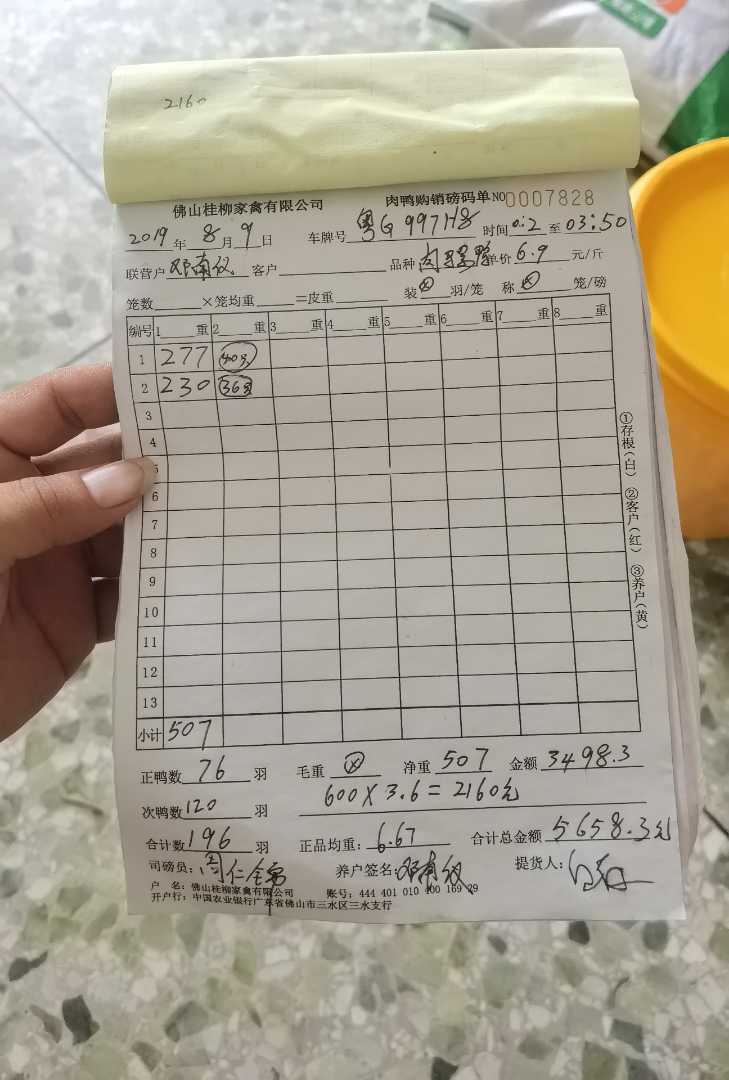 2160
佛山桂柳家禽有限公司 肉鸭购销磅码单 NO 0007828
2019年8月9日 车牌号 粤G 997H8 时间 至 03:50
联营户 邓南 客户 品种 单价 6.9 元/斤
笼数 ×笼均重 =皮重 装 ⊗ 羽/笼 称 ⊗ 笼/磅
编号 1 重 2 重 3 重 4 重 5 重 6 重 7 重 8 重
1 277 40只
2 230 36只
3
4
5
6
7
8
9
10
11
12
13
小计 507
①存根(白) ②客户(红) ③养户(黄)
正鸭数 76 羽 毛重 ⊗ 净重 507 金额 3498.3
次鸭数 120 羽 600×3.6=2160元
合计数 196 羽 正品均重: 6.67 合计总金额 5658.3元
司磅员: 养户签名: 邓南 提货人:
户 名: 佛山桂柳家禽有限公司 账号: 444 401 010 400 169 29
开户行: 中国农业银行广东省佛山市三水区三水支行